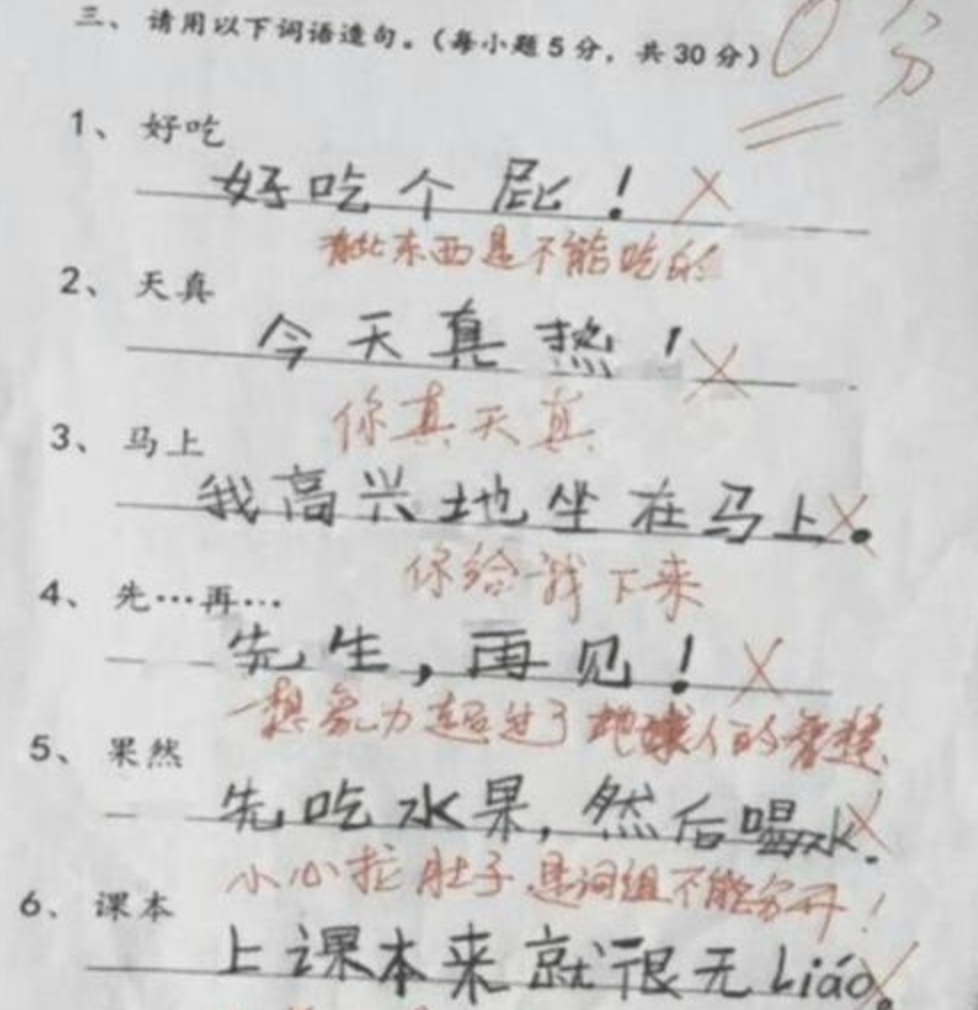 三、请用以下词语造句。(每小题5分,共30分) 0分
1、好吃
好吃个屁! ×
有些东西是不能吃的
2、天真
今天真热! ×
你真天真
3、马上
我高兴地坐在马上。 ×
你给我下来
4、先…再…
先生,再见! ×
想象力超过了地球人的智慧
5、果然
先吃水果,然后喝水. ×
小心拉肚子.是词组不能分开!
6、课本
上课本来就很无Liáo。 ×